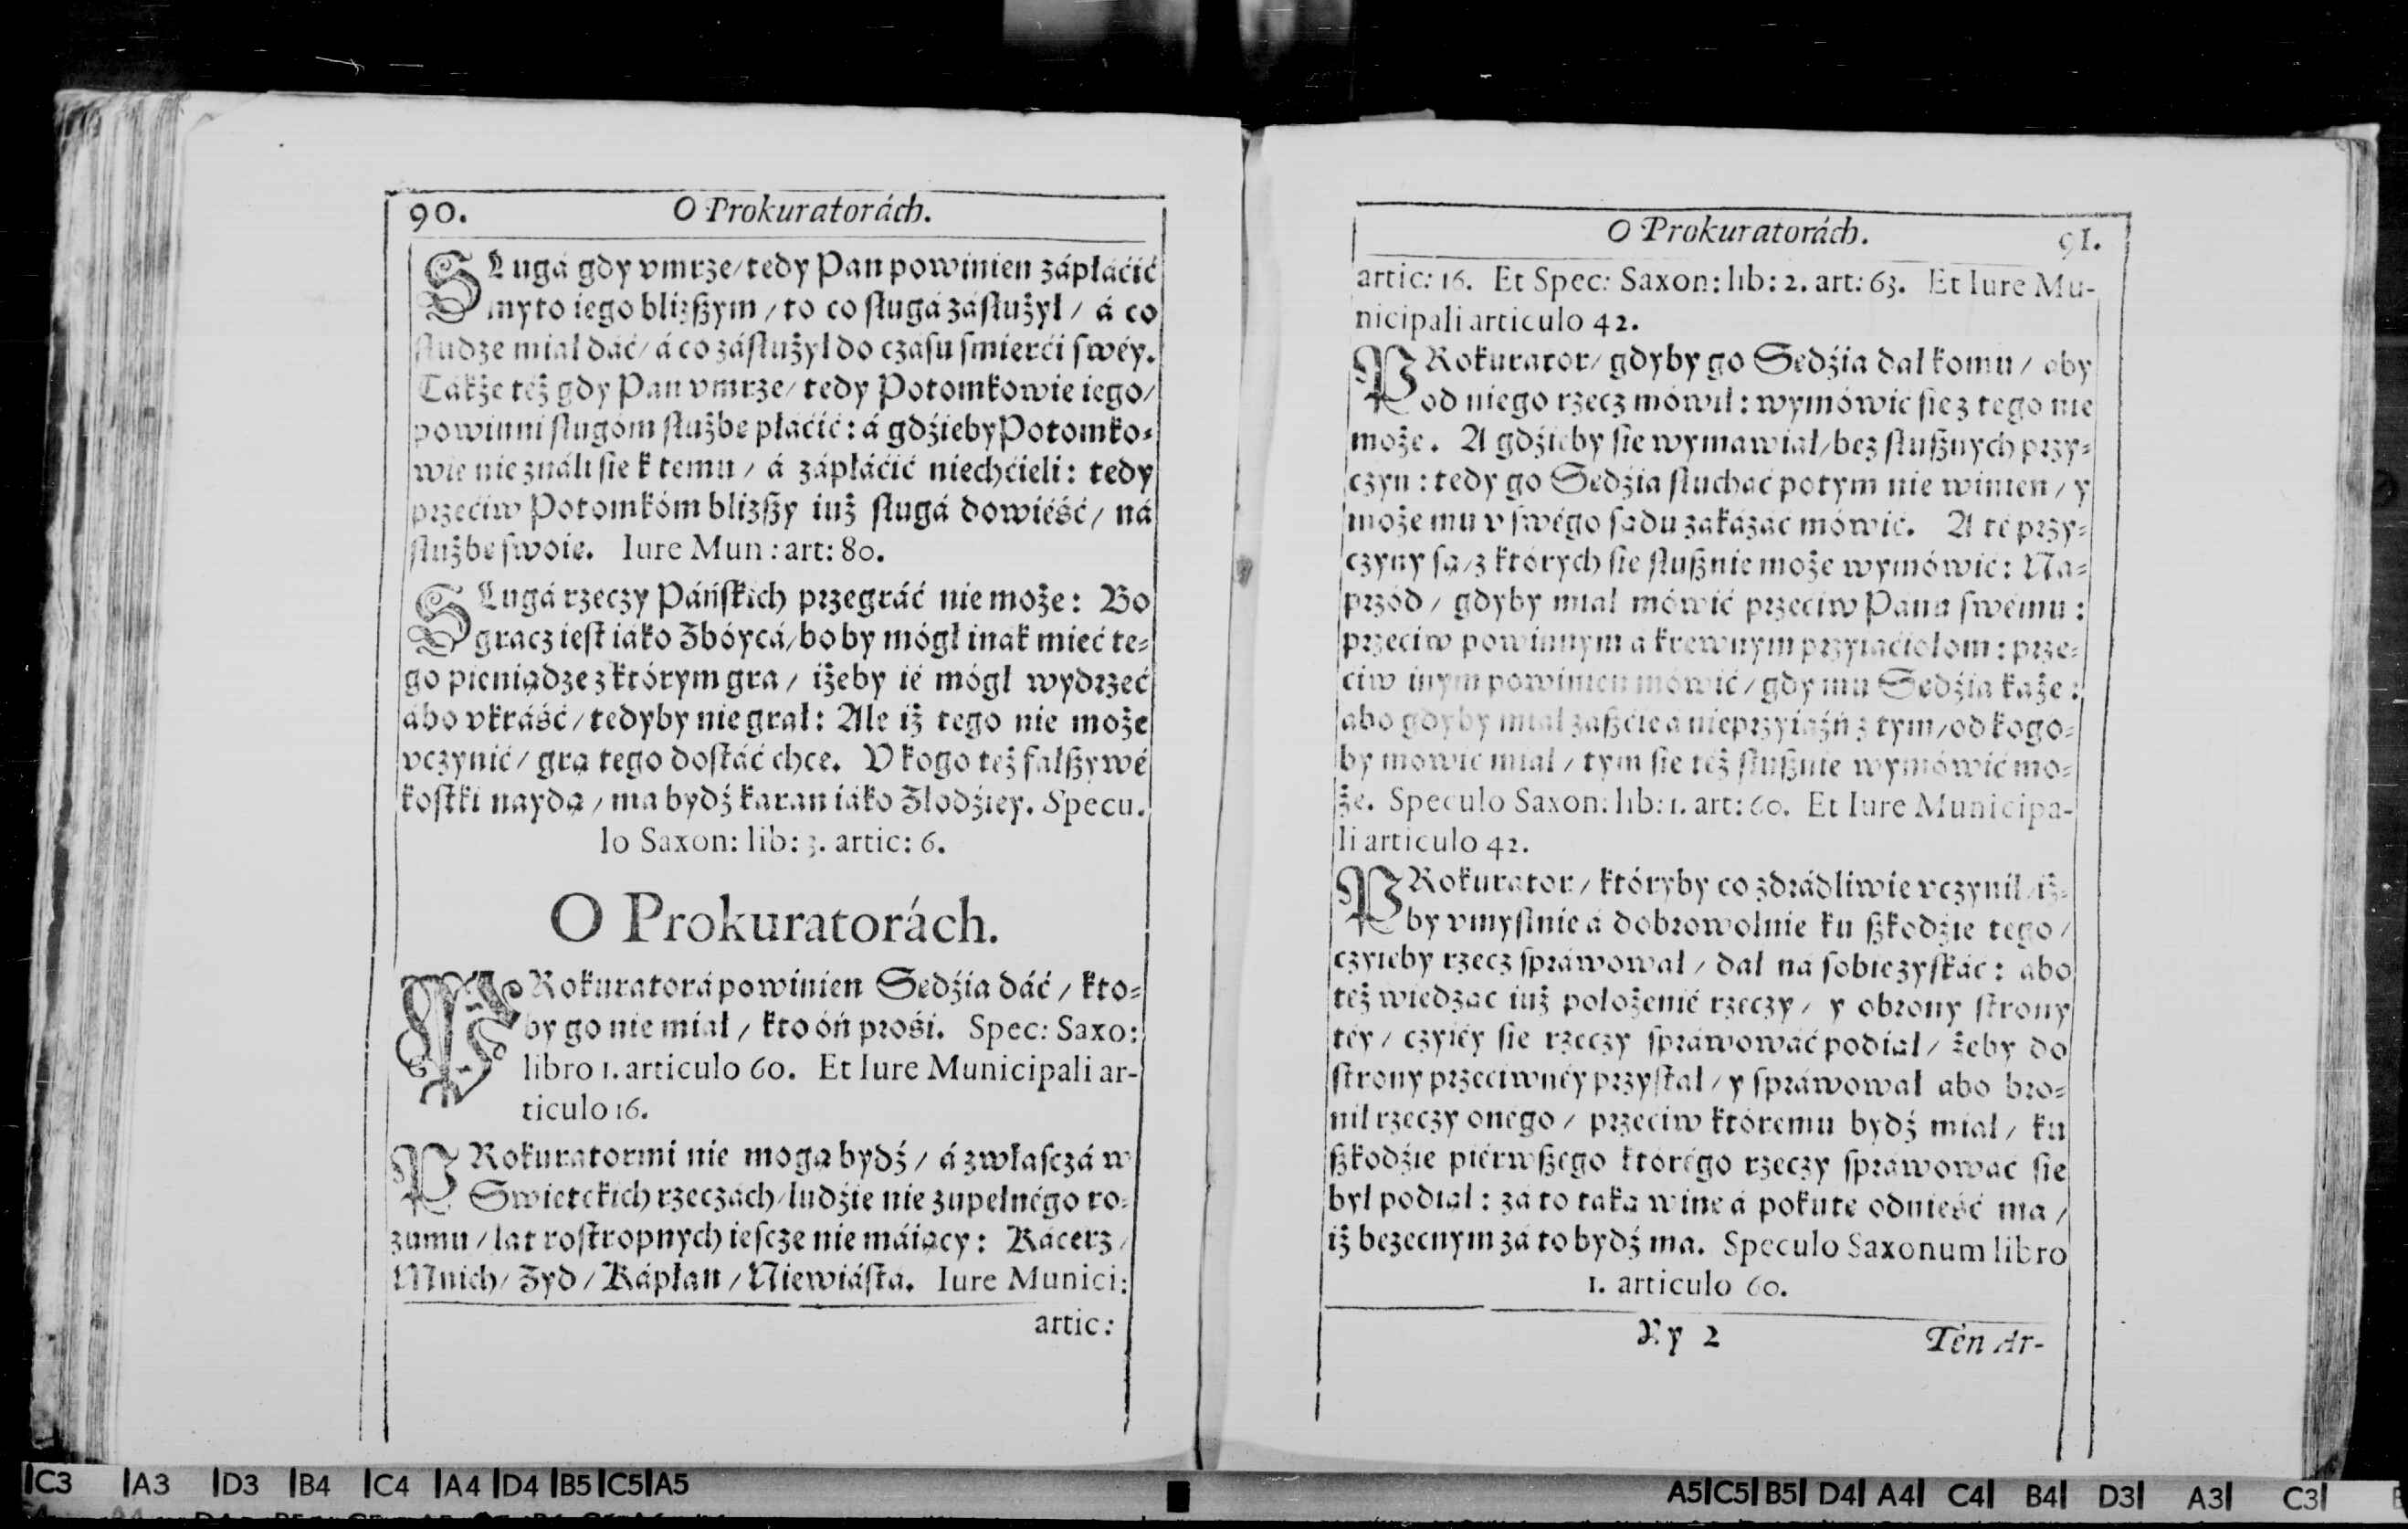 90. O Prokuratorách.
SLugá gdy vmrze/ tedy Pan powinien zápłáćić
myto iego bliższym / to co sługá zásłużył / á co
słudze miał dáć/ á co zásłużył do czásu śmierći swéy.
Tákże téż gdy Pan vmrze/ tedy Potomkowie iego/
powinni sługóm służbe płáćić: á gdźieby Potomko-
wie nie ználi sie k temu / á zápłáćić niechćieli: tedy
przećiw Potomkóm bliższy iuż sługá dowiéść/ ná
służbe swoie. Iure Mun: art: 80.
SLugá rzeczy Páńskich przegráć nie może: Bo
gracz iest iáko Zbóycá/ bo by mógł inák mieć te-
go pieniądze z którym gra / iżeby ié mógł wydrzeć
ábo vkráść/ tedyby nie grał: Ale iż tego nie może
vczynić/ grą tego dostáć chce. V kogo też fałszywé
kostki naydą / ma bydź karan iáko Złodźiey. Specu.
lo Saxon: lib: 3. artic: 6.
O Prokuratorách.
PRokuratorá powinien Sedźia dáć / kto-
by go nie miał / kto óń prośi. Spec: Saxo:
libro 1. articulo 60. Et Iure Municipali ar-
ticulo 16.
PRokuratormi nie mogą bydź / á zwłasczá w
Swietckich rzeczách/ ludźie nie zupełnégo ro-
zumu / lat rostropnych iescze nie máiący: Kácerz /
Mnich/ Zyd / Kápłan / Niewiástá. Iure Munici:
artic:
O Prokuratorách. 91.
artic: 16. Et Spec: Saxon: lib: 2. art: 63. Et Iure Mu-
nicipali articulo 42.
PRokurator/ gdyby go Sedźia dał komu / aby
od niego rzecz mówił: wymówić sie z tego nie
może. A gdźieby sie wymawiał/ bez słusznych przy-
czyn: tedy go Sedźia słuchać potym nie winien / y
może mu v swégo sądu zákázáć mówić. A té przy-
czyny są/ z których sie słusznie może wymówić: Na-
przód / gdyby miał mówić przećiw Panu swému:
przećiw powinnym á krewnym przyiaćiołom: prze-
ćiw inym powinien mówić/ gdy mu Sedźia każe:
abo gdyby miał zaszćie á nieprzyiaźń z tym/ od kogo-
by mówić miał / tym sie téż słusznie wymówić mo-
że. Speculo Saxon: lib: 1. art: 60. Et Iure Municipa-
li articulo 42.
PRokurator / któryby co zdrádliwie vczynił/ iż-
by vmyślnie á dobrowolnie ku szkodźie tego /
czyieby rzecz spráwował / dał ná sobie zyskáć: abo
też wiedząc iuż położenié rzeczy / y obrony strony
téy / czyiéy sie rzeczy spráwowáć podiął / żeby do
strony przećiwnéy przystał / y spráwował abo bro-
nił rzeczy onégo / przećiw któremu bydź miał / ku
szkodźie piérwszégo którégo rzeczy spráwowáć sie
był podiął: zá to taką wine á pokute odnieść ma /
iż bezecnym zá to bydź ma. Speculo Saxonum libro
1. articulo 60.
Yy 2 Tén Ar-
C3 A3 D3 B4 C4 A4 D4 B5 C5 A5
A5 C5 B5 D4 A4 C4 B4 D3 A3 C3